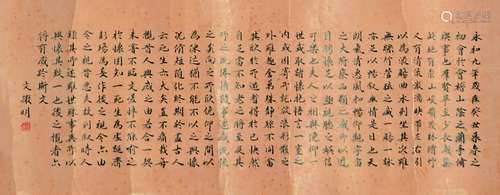 永和九年歲在癸丑暮春之
初會於會稽山陰之蘭亭脩
禊事也羣賢畢至少長咸集
此地有崇山峻領茂林脩竹又
有清流激湍映帶左右引
以為流觴曲水列坐其次雖
無絲竹管弦之盛一觴一詠
亦足以暢叙幽情是日也天
朗氣清惠風和暢仰觀宇宙
之大俯察品類之盛所以遊
目騁懷足以極視聽之娛信
可樂也夫人之相與俯仰一
世或取諸懷抱悟言一室之
內或因寄所託放浪形骸之
外雖趣舍萬殊靜躁不同當
其欣於所遇暫得於己快然
自足不知老之將至及其所
之既倦情隨事遷感慨係
之矣向之所欣俛仰之間以
為陳迹猶不能不以之興懷
況脩短隨化終期於盡古人
云死生亦大矣豈不痛哉每
覽昔人興感之由若合一契
未嘗不臨文嗟悼不能喻之
於懷固知一死生為虛誕齊
彭殤為妄作後之視今亦由
今之視昔悲夫故列叙時人
錄其所述雖世殊事異所以
興懷其致一也後之覽者亦
將有感於斯文
文徵明